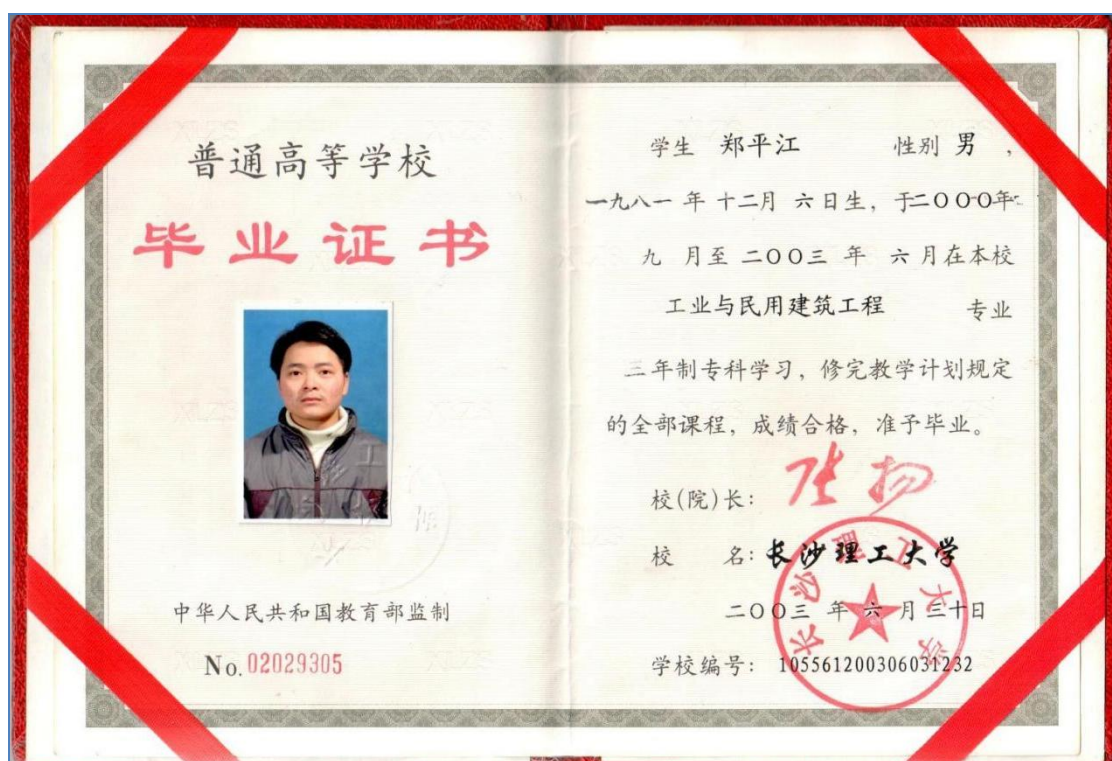 普通高等学校
毕业证书
中华人民共和国教育部监制
No. 02029305
学生 郑平江 性别 男 ,
一九八一 年 十二月 六日生, 于二〇〇〇年
九 月至 二〇〇三 年 六 月在本校
工业与民用建筑工程 专业
三年制专科学习, 修完教学计划规定
的全部课程, 成绩合格, 准予毕业。
校(院)长:
校 名: 长沙理工大学
二〇〇三 年 六 月 三十日
学校编号: 105561200306031232
长沙理工大学